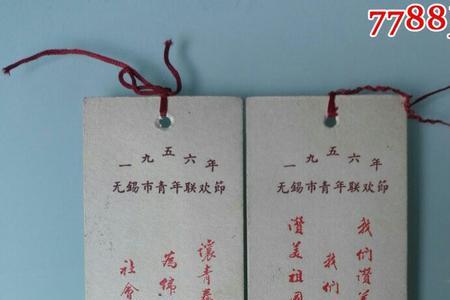 7788
一九五六年
无锡市青年联欢節
讓青春
為
社會
一九五六年
无锡市青年联欢節
我们讚美
我们
讚美祖国